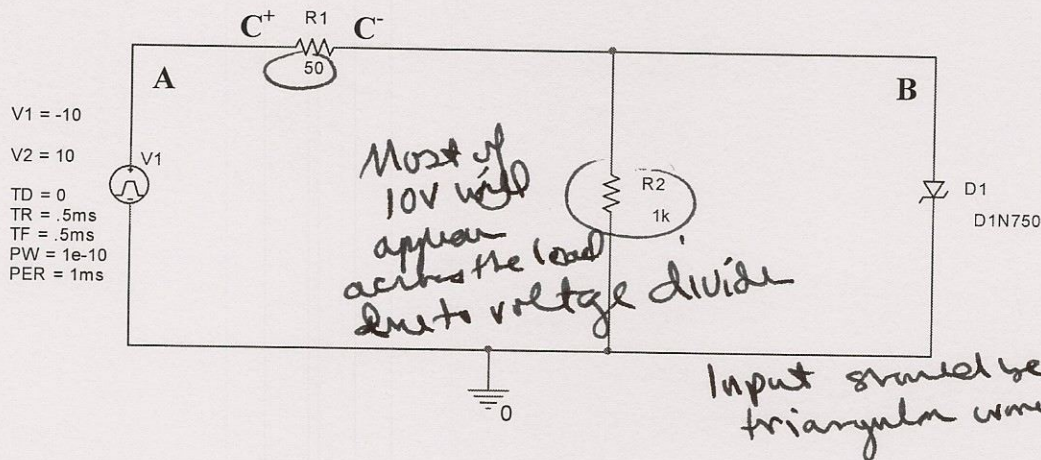 C+ R1 C-
50
A
B
V1 = -10
V2 = 10
V1
TD = 0
TR = .5ms
TF = .5ms
PW = 1e-10
PER = 1ms
Most of
10V will
appear
across the load
due to voltage divide
R2
1k
D1
D1N750
0
Input should be
triangular